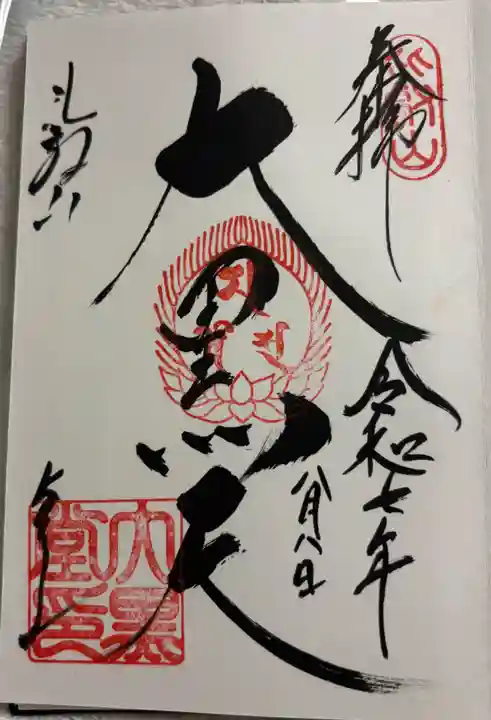 奉拝
令和七年
八月八日
大黒天
比叡山
大黒
堂印